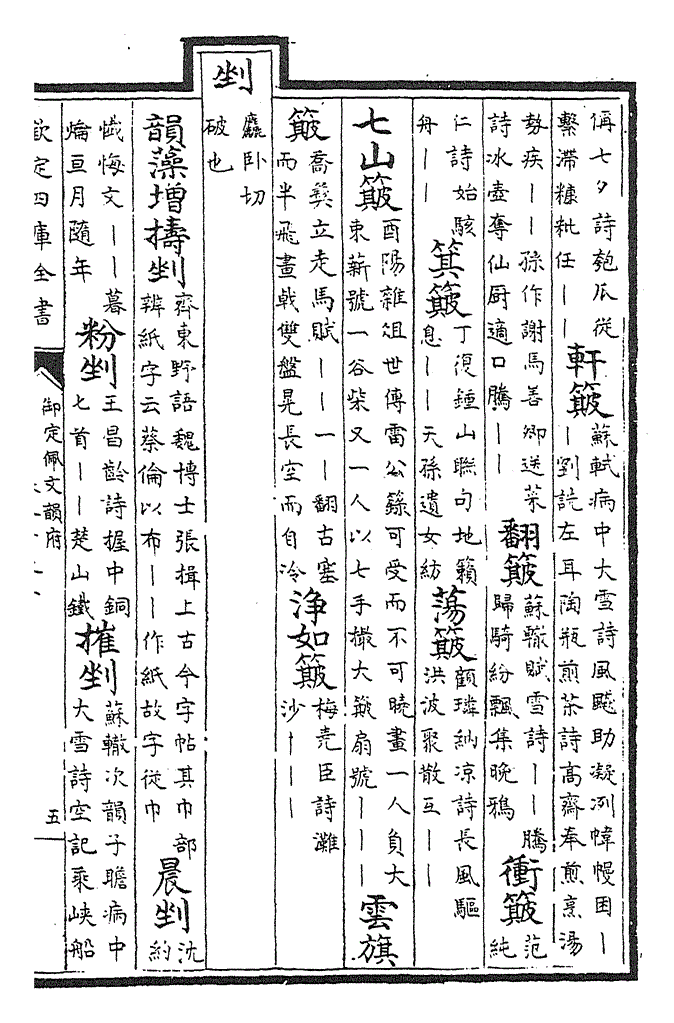 偁七夕詩匏瓜從
繫滯糠粃任｜｜
軒簸
蘇軾病中大雪詩風飈助凝冽幃幔困｜
｜劉詵左耳陶瓶煎茶詩高齋奉煎烹湯
勢疾｜｜孫作謝馬善卿送菜
詩冰壺奪仙厨適口騰｜｜
翻簸
蘇轍賦雪詩｜｜騰
歸騎紛飄集晚鴉
衝簸
范純
仁詩始駭
舟｜｜
箕簸
丁復鍾山聯句地籟
息｜｜天孫遺女紡
蕩簸
顧璘納凉詩長風驅
洪波聚散互｜｜
七山簸
酉陽雜俎世傳雷公籙可受而不可曉畫一人負大
束薪號一谷柴又一人以七手撮大簸扇號｜｜｜
雲旗
簸
喬彛立走馬賦｜｜一｜翻古塞
而半飛畫戟雙盤晃長空而自冷
浄如簸
梅堯臣詩灘
沙｜｜｜
剉
麤卧切
破也
韻藻增擣剉
齊東野語魏博士張揖上古今字帖其巾部
辨紙字云蔡倫以布｜｜作紙故字從巾
晨剉
沈約
懺悔文｜｜暮
爚亘月隨年
粉剉
王昌齡詩握中銅
匕首｜｜楚山鐵
摧剉
蘇轍次韻子瞻病中
大雪詩空記乘峽船
欽定四庫全書
御定佩文韻府
五